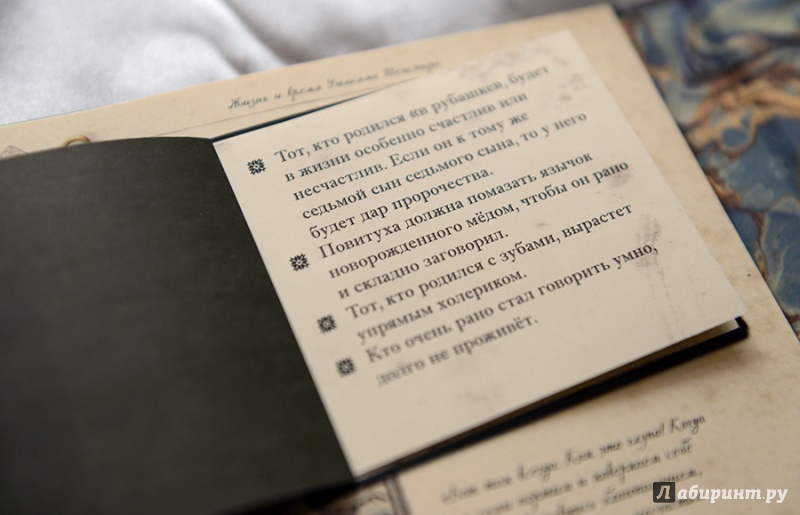 Жизнь и время Уильяма Шекспира
Тот, кто родился «в рубашке», будет
в жизни особенно счастлив или
несчастлив. Если он к тому же
седьмой сын седьмого сына, то у него
будет дар пророчества.
Повитуха должна помазать язычок
новорожденного мёдом, чтобы он рано
и складно заговорил.
Тот, кто родился с зубами, вырастет
упрямым холериком.
Кто очень рано стал говорить умно,
долго не проживёт.
Как это глупо! Когда
себе
Лабиринт.ру